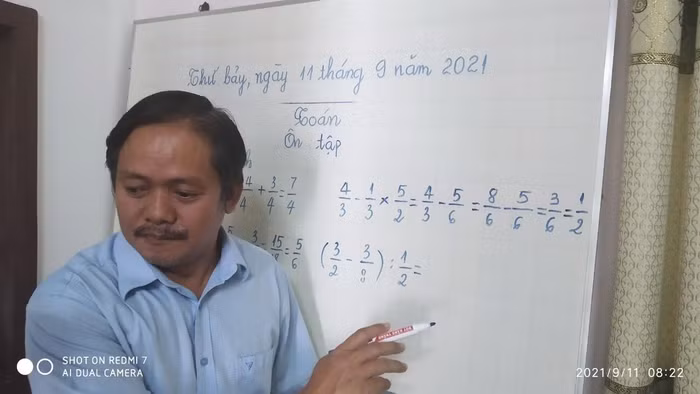 Thứ bảy, ngày 11 tháng 9 năm 2021
Toán
Ôn tập
h
4/4 + 3/4 = 7/4
4/3 - 1/3 × 5/2 = 4/3 - 5/6 = 8/6 - 5/6 = 3/6 = 1/2
3 = 15 = 5/6
(3/2 - 3/8) : 1/2 =
SHOT ON REDMI 7
AI DUAL CAMERA
2021/9/11 08:22